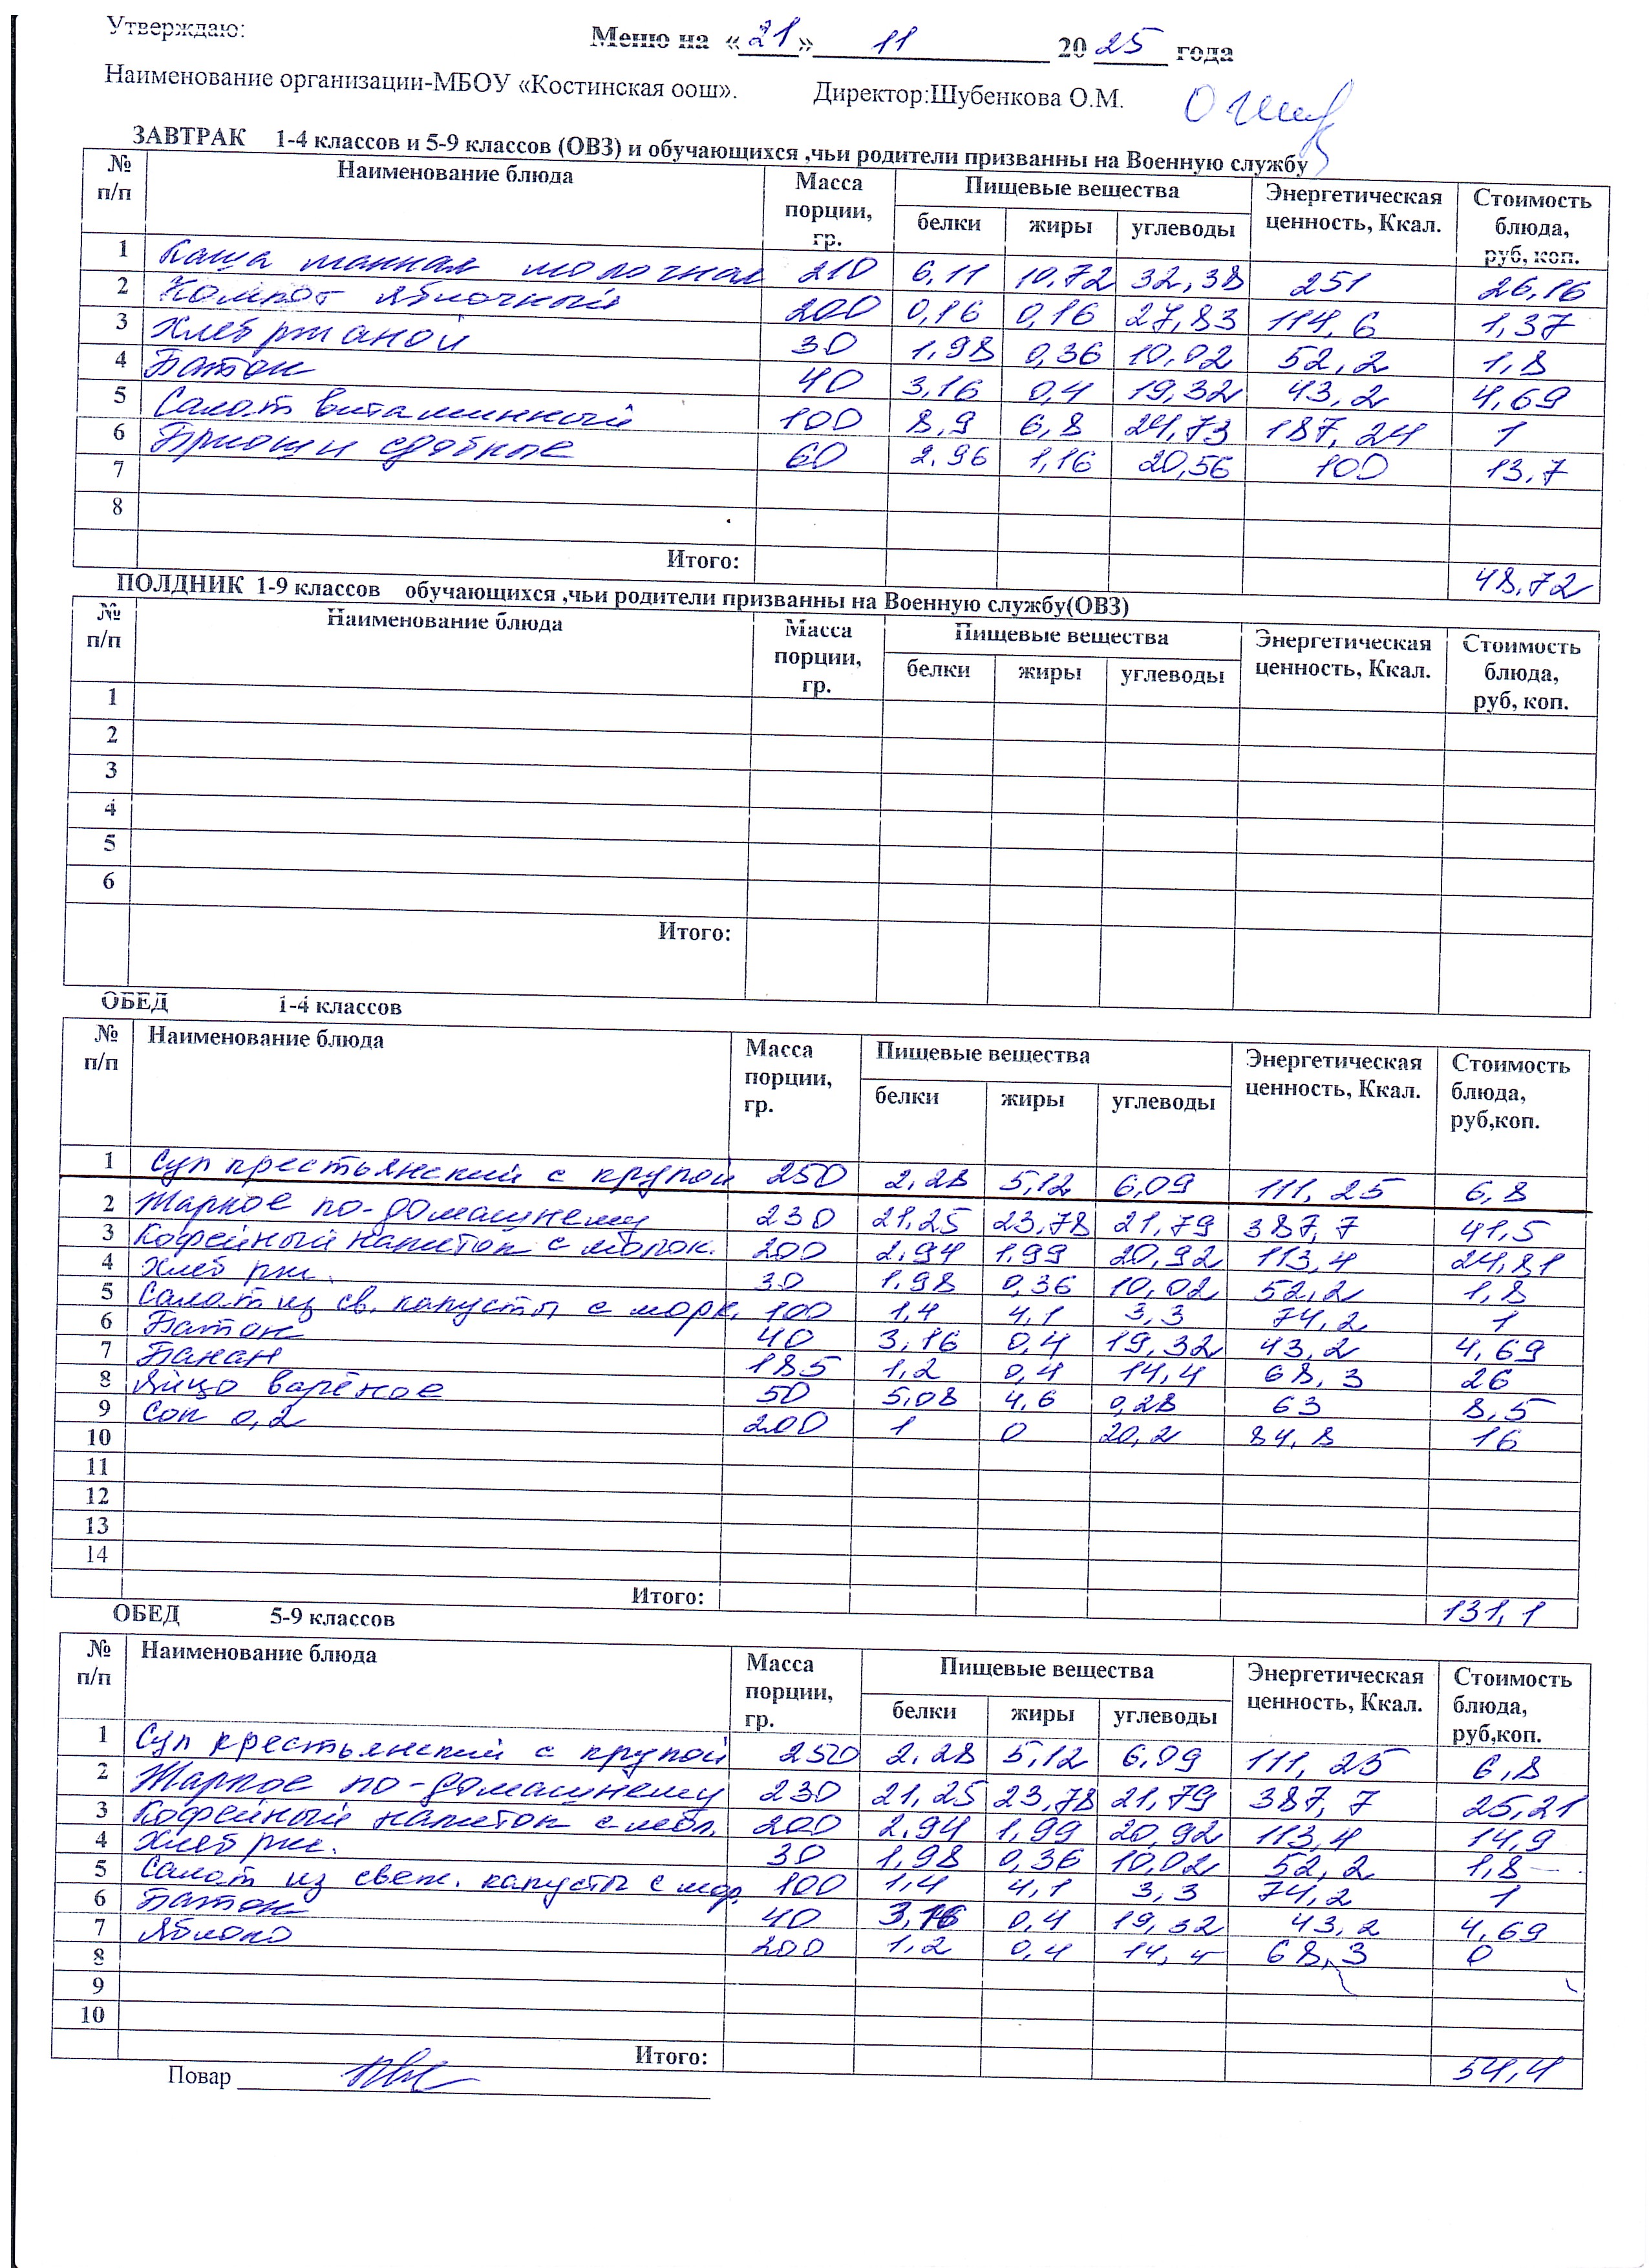 Утверждаю:
Меню на «21» 11 2025 года
Наименование организации-МБОУ «Костинская оош». Директор:Шубенкова О.М.
ЗАВТРАК 1-4 классов и 5-9 классов (ОВЗ) и обучающихся ,чьи родители призванны на Военную службу
№ п/п Наименование блюда Масса порции, гр. Пищевые вещества Энергетическая ценность, Ккал. Стоимость блюда, руб, коп.
белки жиры углеводы
1 Каша манная молочная 210 6,11 10,72 32,38 251 26,16
2 Компот яблочный 200 0,16 0,16 27,83 114,6 1,37
3 Хлеб ржаной 30 1,98 0,36 10,02 52,2 1,8
4 Батон 40 3,16 0,4 19,32 43,2 4,69
5 Салат витаминный 100 8,9 6,8 24,73 187,24 1
6 Бриоши сдобные 60 2.96 1,16 20,56 100 13,7
7
8
Итого: 48,72
ПОЛДНИК 1-9 классов обучающихся ,чьи родители призванны на Военную службу(ОВЗ)
№ п/п Наименование блюда Масса порции, гр. Пищевые вещества Энергетическая ценность, Ккал. Стоимость блюда, руб, коп.
белки жиры углеводы
1
2
3
4
5
6
Итого:
ОБЕД 1-4 классов
№ п/п Наименование блюда Масса порции, гр. Пищевые вещества Энергетическая ценность, Ккал. Стоимость блюда, руб,коп.
белки жиры углеводы
1 Суп крестьянский с крупой 250 2,28 5,12 6,09 111,25 6,8
2 Жаркое по-домашнему 230 21,25 23,78 21,79 387,7 41,5
3 Кофейный напиток с молок. 200 2,94 1,99 20,92 113,4 24,81
4 Хлеб рж. 30 1,98 0,36 10,02 52,2 1,8
5 Салат из св. капусты с морк. 100 1,4 4,1 3,3 74,2 1
6 Батон 40 3,16 0,4 19,32 43,2 4,69
7 Банан 185 1,2 0,4 14,4 68,3 26
8 Яйцо варёное 50 5,08 4,6 0,28 63 8,5
9 Сок 0,2 200 1 0 20,2 84,8 16
10
11
12
13
14
Итого: 131,1
ОБЕД 5-9 классов
№ п/п Наименование блюда Масса порции, гр. Пищевые вещества Энергетическая ценность, Ккал. Стоимость блюда, руб,коп.
белки жиры углеводы
1 Суп крестьянский с крупой 250 2,28 5,12 6,09 111,25 6,8
2 Жаркое по-домашнему 230 21,25 23,78 21,79 387,7 25,21
3 Кофейный напиток с мол. 200 2,94 1,99 20,92 113,4 14,9
4 Хлеб рж. 30 1,98 0,36 10,02 52,2 1,8
5 Салат из свеж. капусты с мор. 100 1,4 4,1 3,3 74,2 1
6 Батон 40 3,16 0,4 19,32 43,2 4,69
7 Яблоко 200 1,2 0,4 14,4 68,3 0
8
9
10
Итого: 54,4
Повар